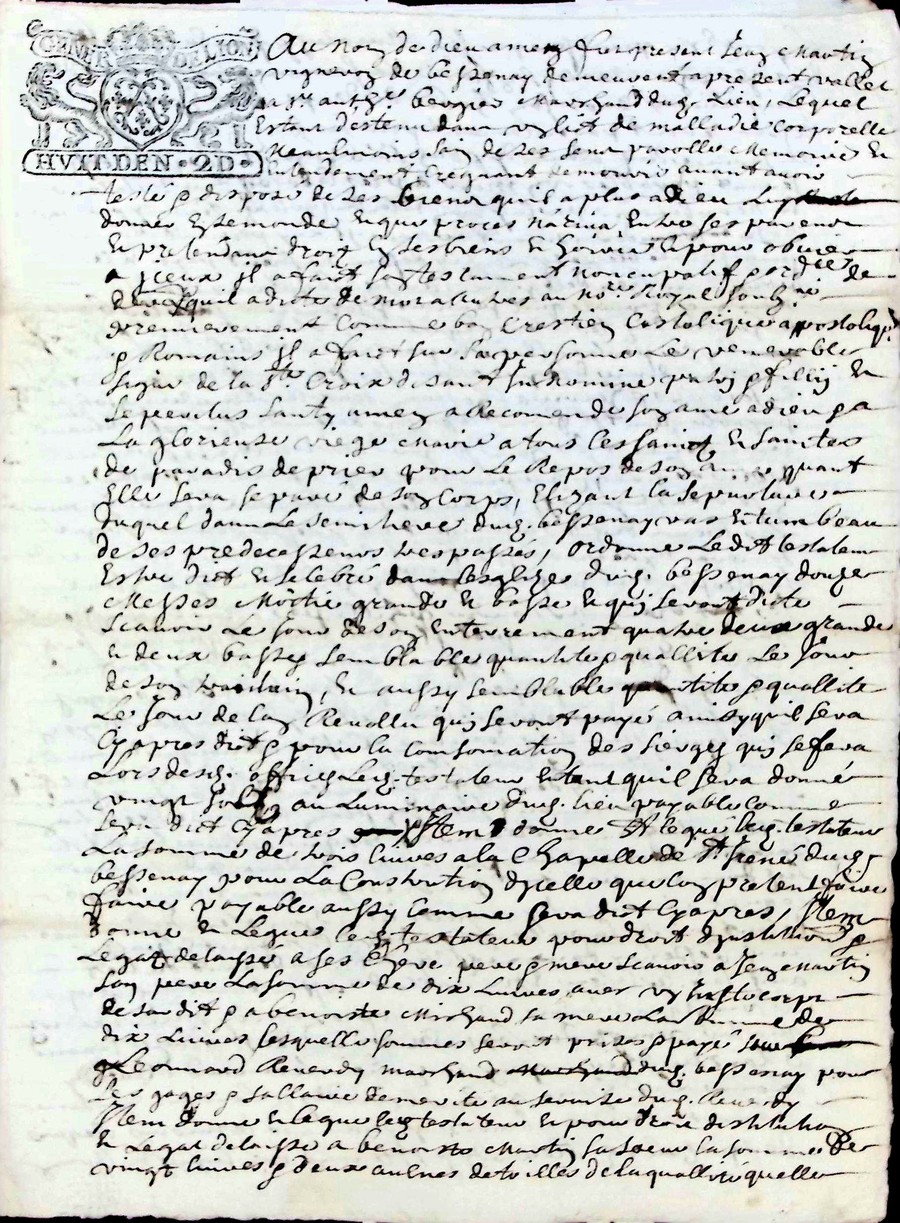 GENER DELION
HVIT DEN · 2D ·
Au nom de dieu amen fut present Jean Martin
vigneron de bessenay demeurant a present vallet
a Sr anthe bergier Marchand dud. Lieu, Lequel
Estant destenu dans un lict de malladie corporelle
Neaulmoins sain de ses sens parolle Memoire Et
Entendement Creignant de mourir avant avoir
testé & disposé de ses biens quil a plus a dieu Luy
donner En ce monde Et que proces narriva Entre ses parens
Et pretendans droit En ses biens Et pour obvier
a Jceux Jl a faict son testament noncupatif de
quil a dicte de mot a au Nore Royal Soubne
premierement Comme bon Crestien Catolique appostolique
& Romain Jl a faict sur sa personne Le venerable
signe de la Ste Croix disant In Nomine patris & fillij Et
Se peritus santy amen a Recomende son ame a dieu & a
La glorieuse vierge Marie a tous Les saincts Et sainctes
de paradis de prier pour Le Repos de son ame quant
Elle sera separé de son Corps, Elizant la sepulture
duquel dans Le semithere dud. bessenay vas Et tumbeau
de ses predecesseurs trespassés, ordonne Ledit testateur
Estre dict Et celebré dans Lesglize dud. bessenay douze
Messes Moitié grande Et basse Et quy seront dicte
Scavoir Le Jour de son Enterrement quatre deux grande
Et deux basses semblable quantite & quallite Le Jour
de son , Et aussy semblable quantite & quallite
Le Jour de lan Revollu quy seront payé ainsy quil sera
Cy apres dict & pour la Consomation des sierges quy se fera
Lors desd. offices Led. testateur Entent quil sera donné
vingt solz au Luminaire dud. lieu payable comme
sera dict Cy apres Jtem donne Et legue Led. testateur
La somme de trois livres a la Chapelle de St Jrené dud.
bessenay pour La Constrution dycelle que lon pretent faire
faire payable aussy comme sera dict Cy apres, Jtem
donne Et Legue Led. testateur pour droit dynstitution &
Legat delaissé a ses pere & mere Scavoir a Jean Martin
son pere La somme de dix Livres avec un
de & a benoiste Marchand sa mere La somme de
dix Livres Lesquelle sommes seront prises & payé
Leonnard Reverdy marchand dud. bessenay pour
Les gages & sallaire de merite au service dud. Reverdy
Jtem donne Et legue Led. testateur Et pour droit dinstitution
Et Legat delaisse a benoiste Martin sa soeur La somme de
vingt livres & deux aulnes de toilles de la quallité quelle